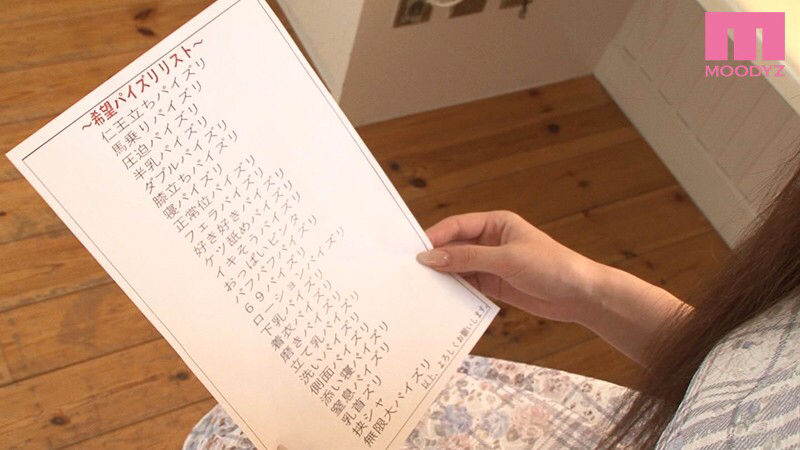 ～希望パイズリリスト～
仁王立ちパイズリ
馬乗りパイズリ
圧迫パイズリ
半乳パイズリ
ダブルパイズリ
膝立ちパイズリ
寝パイズリ
正常位パイズリ
フェラパイズリ
好き好きパイズリ
ケツ舐めパイズリ
イキそうパイズリ
おっぱいビンタ
パフパフパイズリ
69パイズリ
ローションパイズリ
下乳パイズリ
着衣パイズリ
磨きパイズリ
立て乳パイズリ
洗いパイズリ
側面パイズリ
添い寝パイズリ
窒息パイズリ
乳首ズリ
挟シャ
無限大パイズリ
以上、よろしくお願いします。
MOODYZ